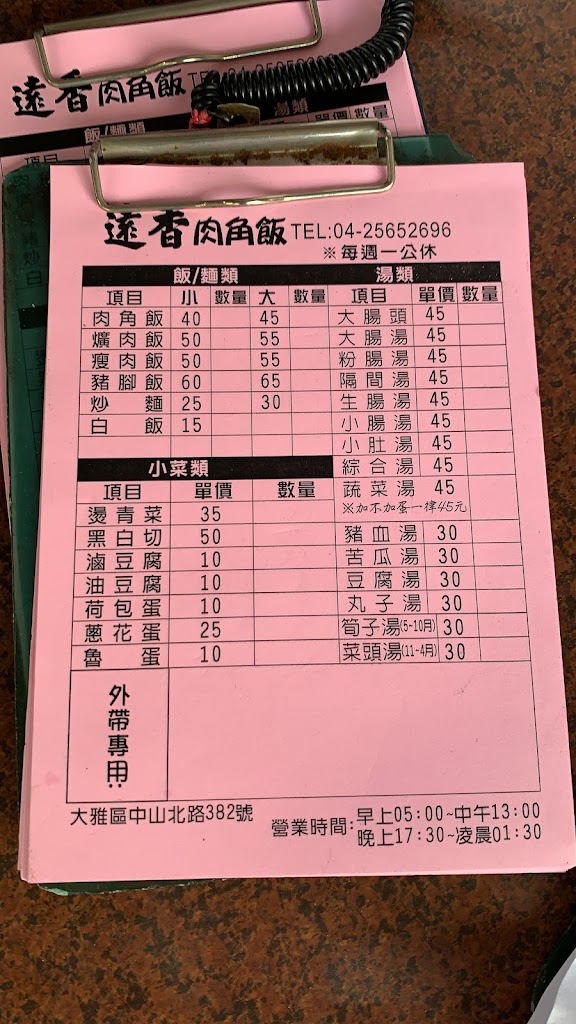 遠香肉角飯
飯/麵類 湯類
項目 單價 數量
遠香肉角飯 TEL:04-25652696
※每週一公休
飯/麵類 湯類
項目 小 數量 大 數量 項目 單價 數量
肉角飯 40 45 大腸頭 45
爌肉飯 50 55 大腸湯 45
瘦肉飯 50 55 粉腸湯 45
豬腳飯 60 65 隔間湯 45
炒麵 25 30 生腸湯 45
白飯 15 小腸湯 45
小肚湯 45
小菜類 綜合湯 45
項目 單價 數量 蔬菜湯 45
※加不加蛋一律45元
燙青菜 35
黑白切 50 豬血湯 30
滷豆腐 10 苦瓜湯 30
油豆腐 10 豆腐湯 30
荷包蛋 10 丸子湯 30
蔥花蛋 25 筍子湯(5~10月) 30
魯蛋 10 菜頭湯(11~4月) 30
外帶專用:
大雅區中山北路382號
營業時間:早上05:00~中午13:00
晚上17:30~凌晨01:30